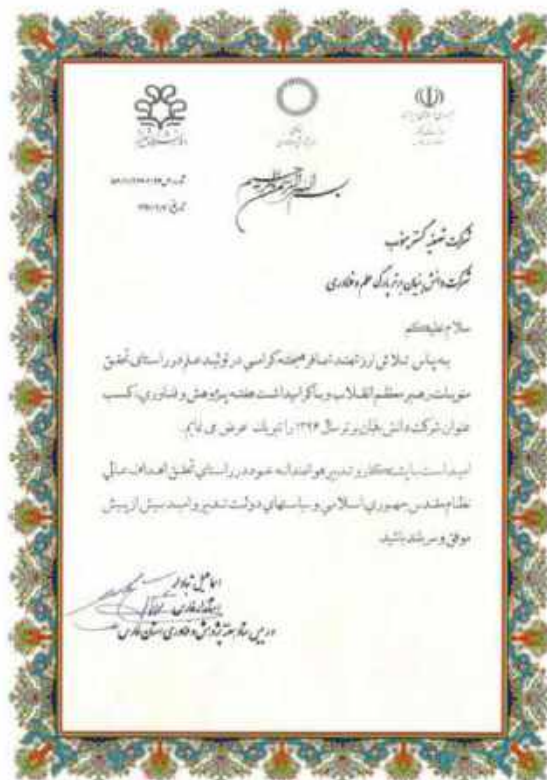 جمهوری اسلامی ایران
دانشگاه شیراز
بسم الله الرحمن الرحیم
شرکت تصفیه گستر جنوب
شرکت دانش بنیان برتر پارک علم و فناوری
سلام علیکم
به پاس تلاش ارزشمند در تولید علم در راستای تحقق
منویات رهبر معظم انقلاب و با گرامیداشت هفته پژوهش و فناوری، کسب
عنوان شرکت دانش بنیان برتر سال ۱۳۹۶ را تبریک عرض می نمایم.
امید است با پشتکار و تدبیر هوشمندانه خود در راستای تحقق اهداف عالی
نظام مقدس جمهوری اسلامی و سیاستهای دولت تدبیر و امید بیش از پیش
موفق و سربلند باشید.
اسماعیل تبادار
استاندار فارس
و رییس ستاد هفته پژوهش و فناوری استان فارس